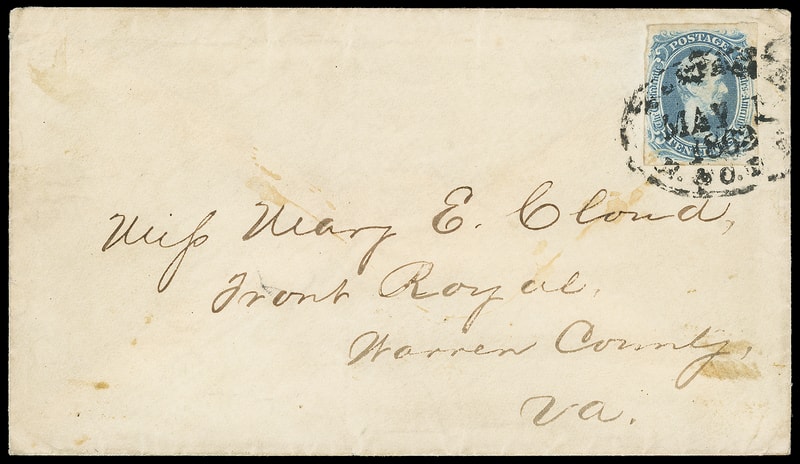 POSTAGE
TEN CENTS
MAY
186
& CO.
Miſs Mary E. Cloud,
Front Royal,
Warren County,
Va.